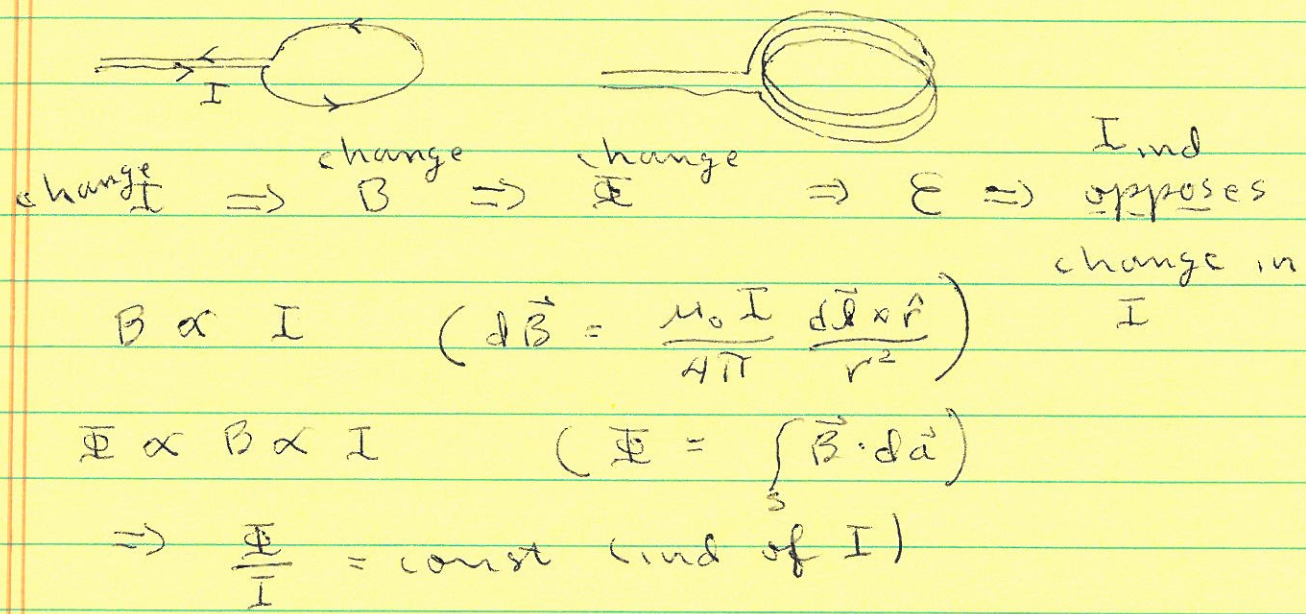 I
change I => change B => change Φ => ε => I ind opposes change in I
B ∝ I (dB⃗ = μ₀I/4π dl⃗ × r̂/r²)
Φ ∝ B ∝ I (Φ = ∫_S B⃗ · da⃗)
=> Φ/I = const (ind of I)